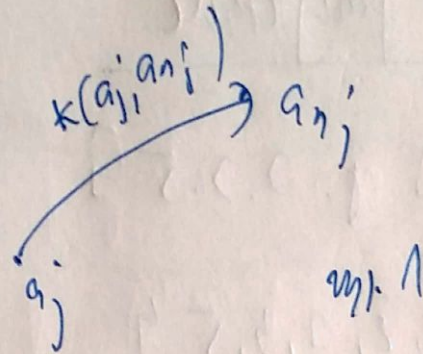 k(a_j, a_{n_j})
a_{n_j}
a_j